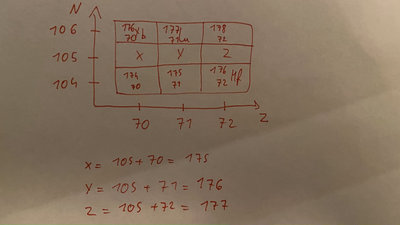 N
106 176 Yb 177 Lu 178
70 71 72
105 X Y Z
104 174 175 176 Hf
70 71 72
70 71 72 Z
X = 105 + 70 = 175
Y = 105 + 71 = 176
Z = 105 + 72 = 177